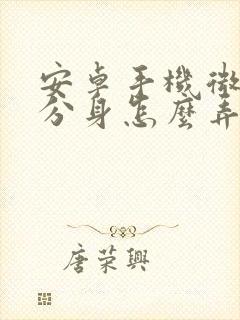 安卓手機微
分身怎麼弄
唐榮興